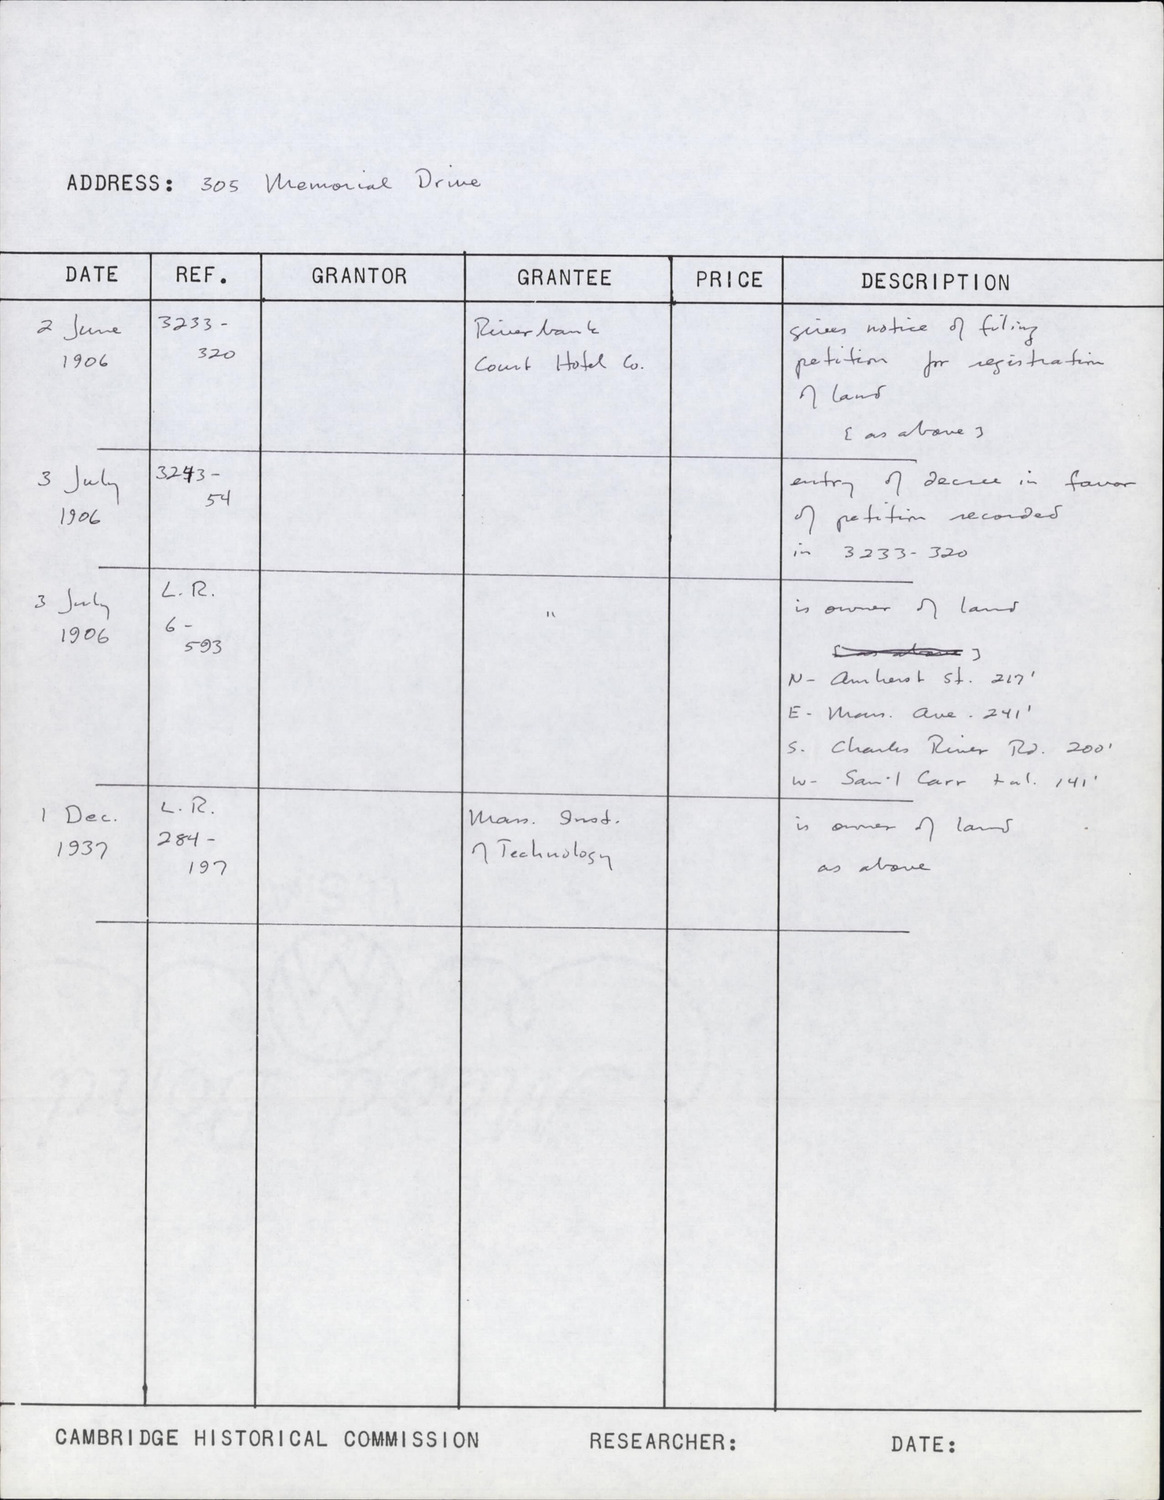 ADDRESS: 305 Memorial Drive
DATE REF. GRANTOR GRANTEE PRICE DESCRIPTION
2 June 3233- Riverbank gives notice of filing
1906 320 Court Hotel Co. petition for registration
of land
[as above]
3 July 3243- entry of decree in favor
1906 54 of petition recorded
in 3233-320
3 July L.R. " is owner of land
1906 6- 
593
N- Amherst St. 217'
E- Mass. Ave. 241'
S. Charles River Rd. 200'
W- Sam'l Carr et al. 141'
1 Dec. L.R. Mass. Inst. is owner of land
1937 284- of Technology as above
197
CAMBRIDGE HISTORICAL COMMISSION RESEARCHER: DATE: